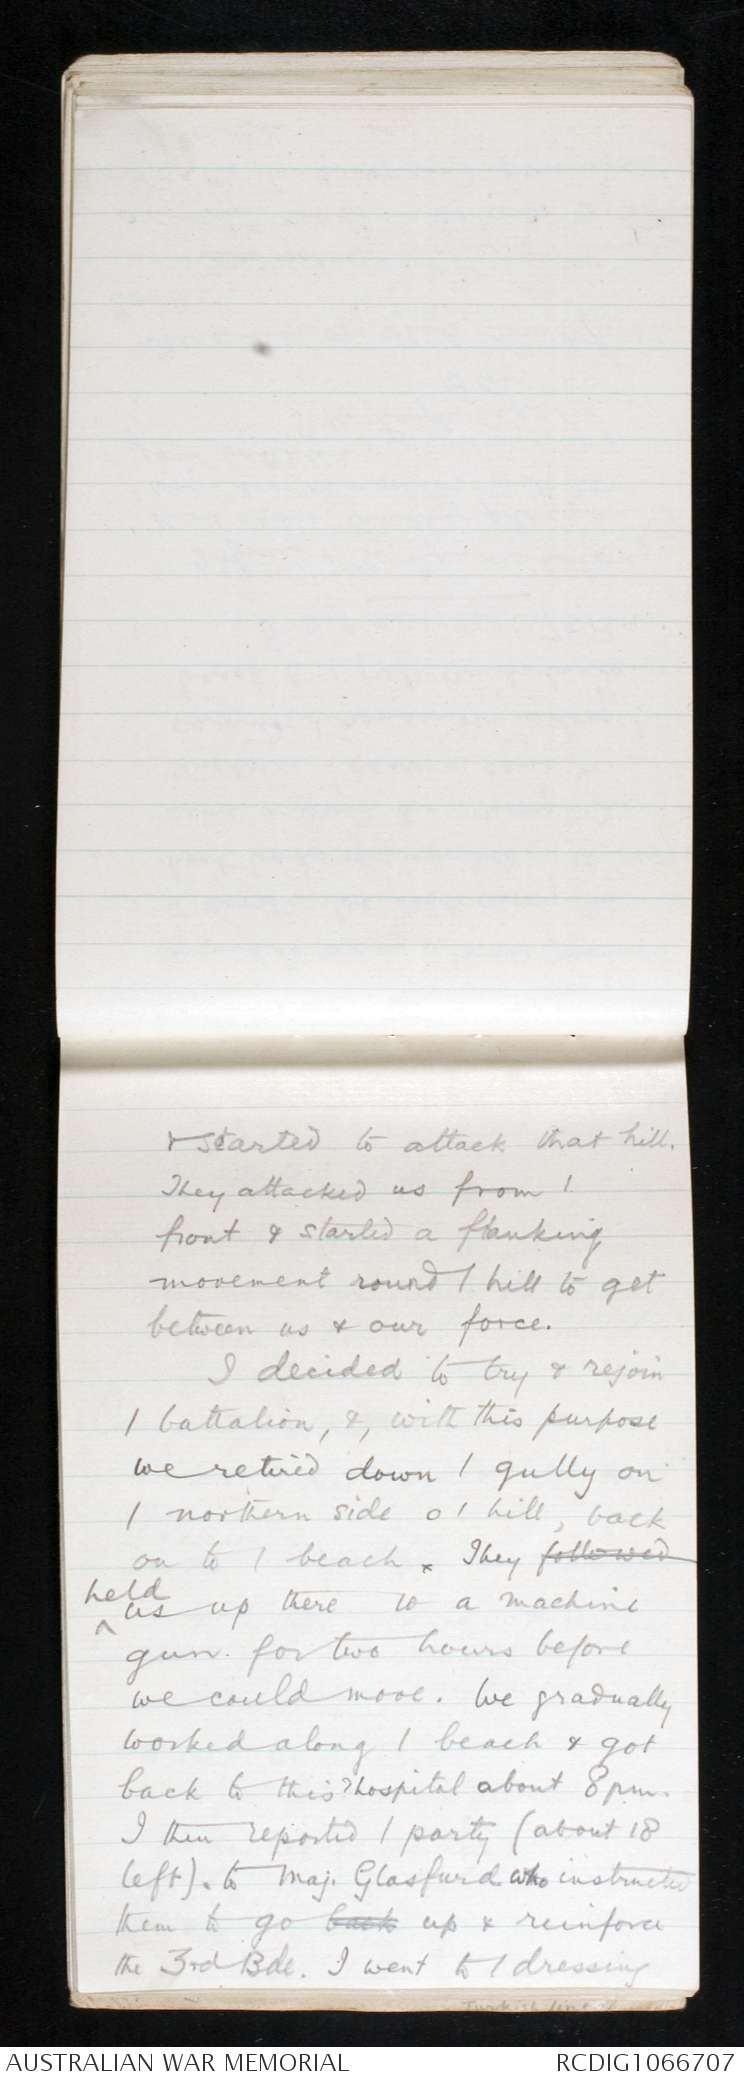 & started to attack that hill.
They attacked us from /
front & started a flanking
movement round / hill to get
between us & our force.
I decided to try & rejoin
/ battalion, &, with this purpose
we retired down / gully on
/ northern side o / hill, back
on to / beach. They followed
held
^ us up there w a machine
gun for two hours before
we could move. We gradually
worked along / beach & got
back to this ?hospital about 8 pm.
I then reported / party (about 18
left). to Maj. Glasfurd who instructed
them to go back up & reinforce
the 3rd Bde. I went to / dressing
AUSTRALIAN WAR MEMORIAL
RCDIG1066707